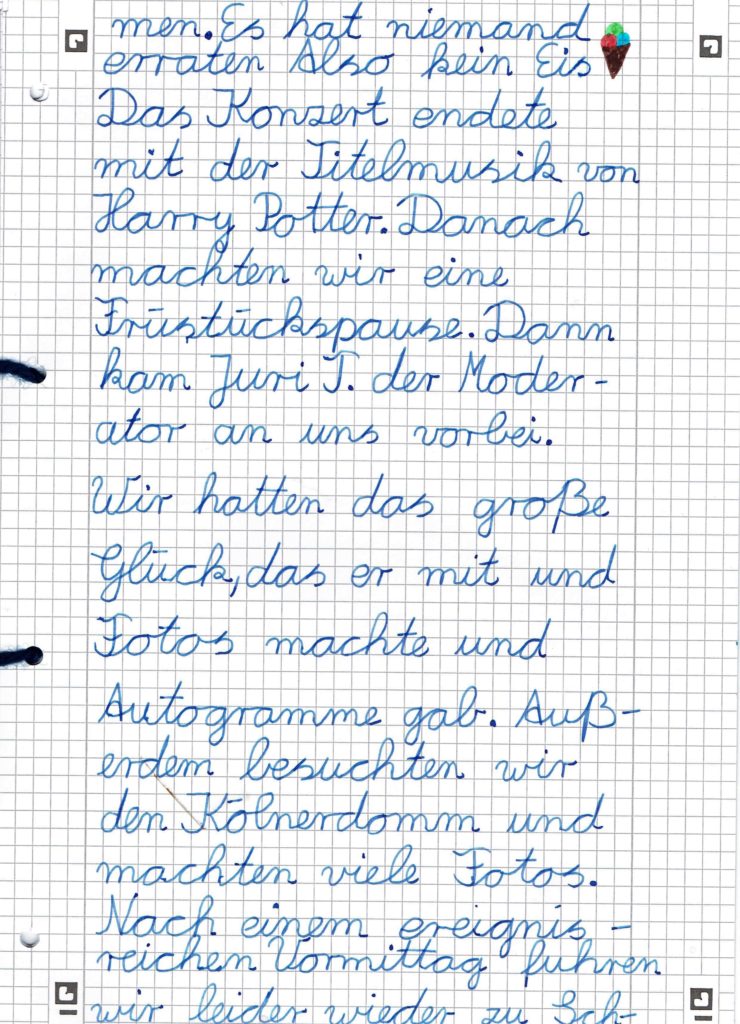 men. Es hat niemand
erraten Also kein Eis
Das Konzert endete
mit der Titelmusik von
Harry Potter. Danach
machten wir eine
Früstückspause. Dann
kam Juri T. der Moder-
ator an uns vorbei.
Wir hatten das große
Glück, das er mit und
Fotos machte und
Autogramme gab. Auß-
erdem besuchten wir
den Kölnerdomm und
machten viele Fotos.
Nach einem ereignis-
reichen Vormittag fuhren
wir leider wieder zu Sch-